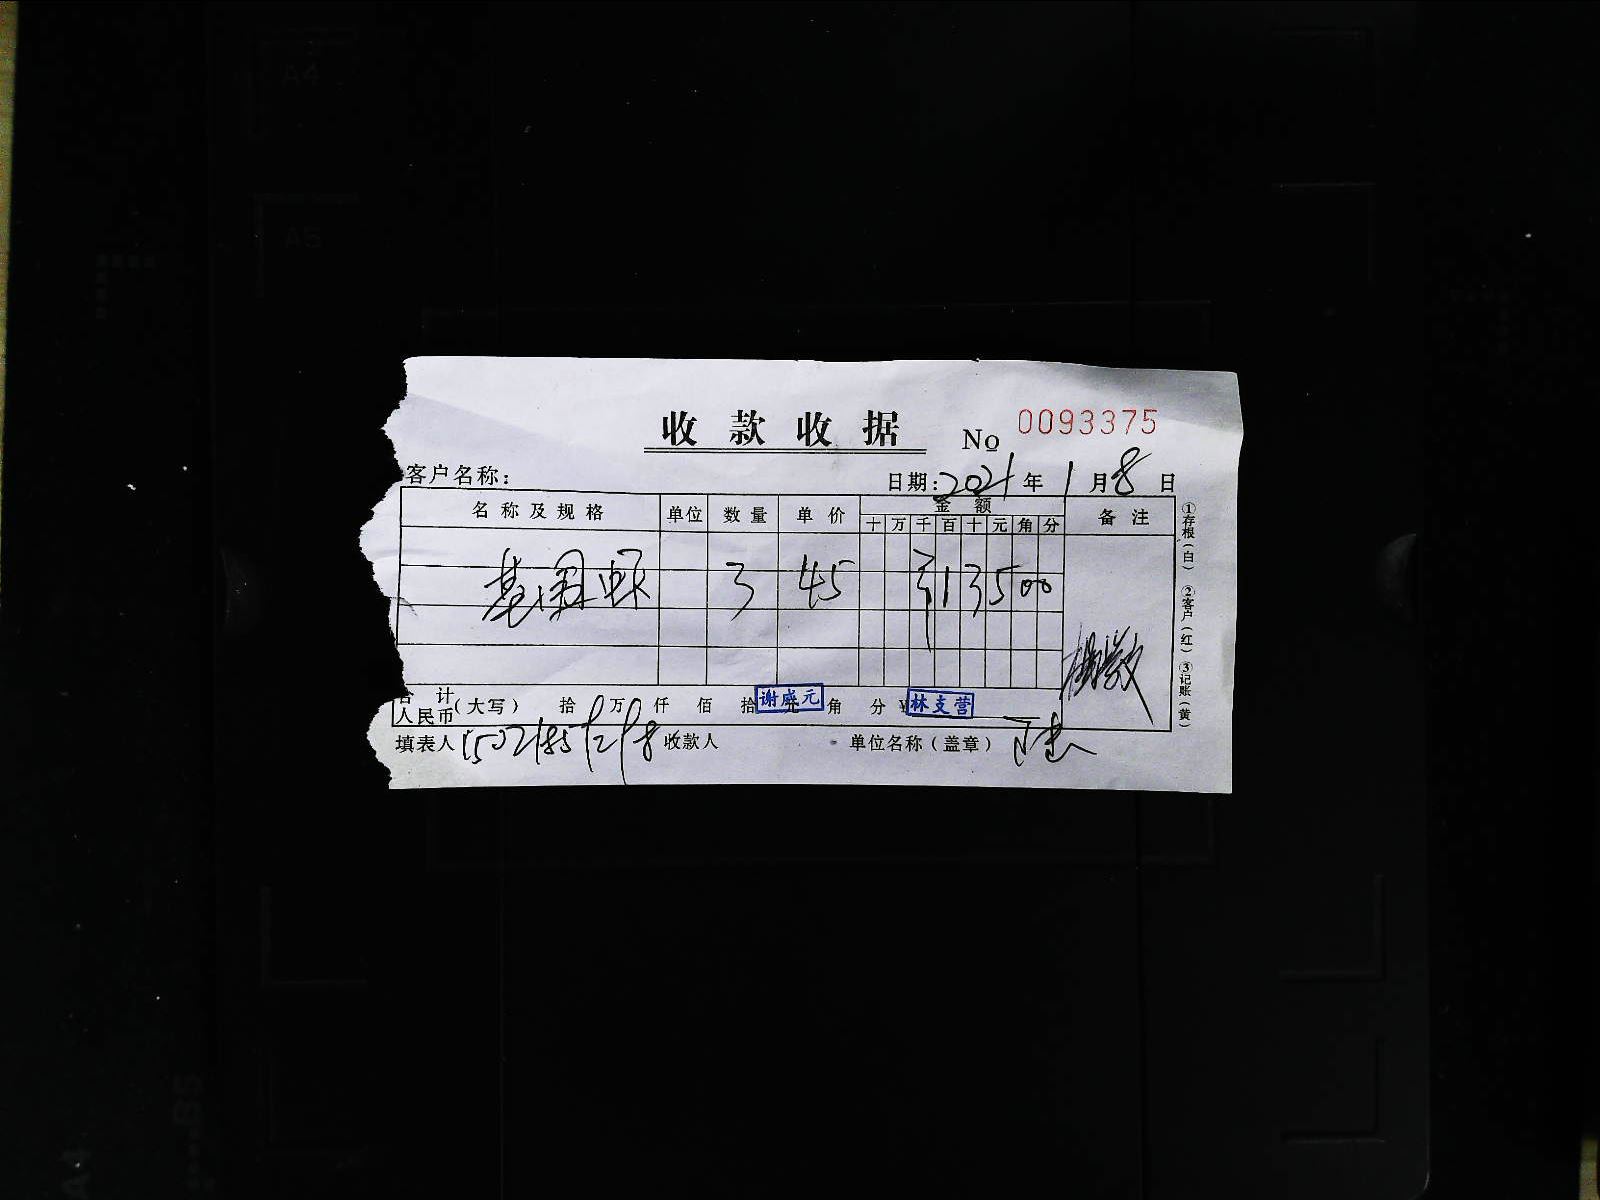 收款收据 No 0093375
客户名称: 日期:2021年1月8日
名称及规格 单位 数量 单价 金额 备注
十 万 千 百 十 元 角 分
基围虾 3 45 ¥13500
①存根(白) ②客户(红) ③记账(黄)
合计
人民币(大写) 拾 万 仟 佰 拾 元 角 分 ¥
谢盛元 林支营
填表人 收款人 单位名称(盖章)
A4
A5
B5
A4